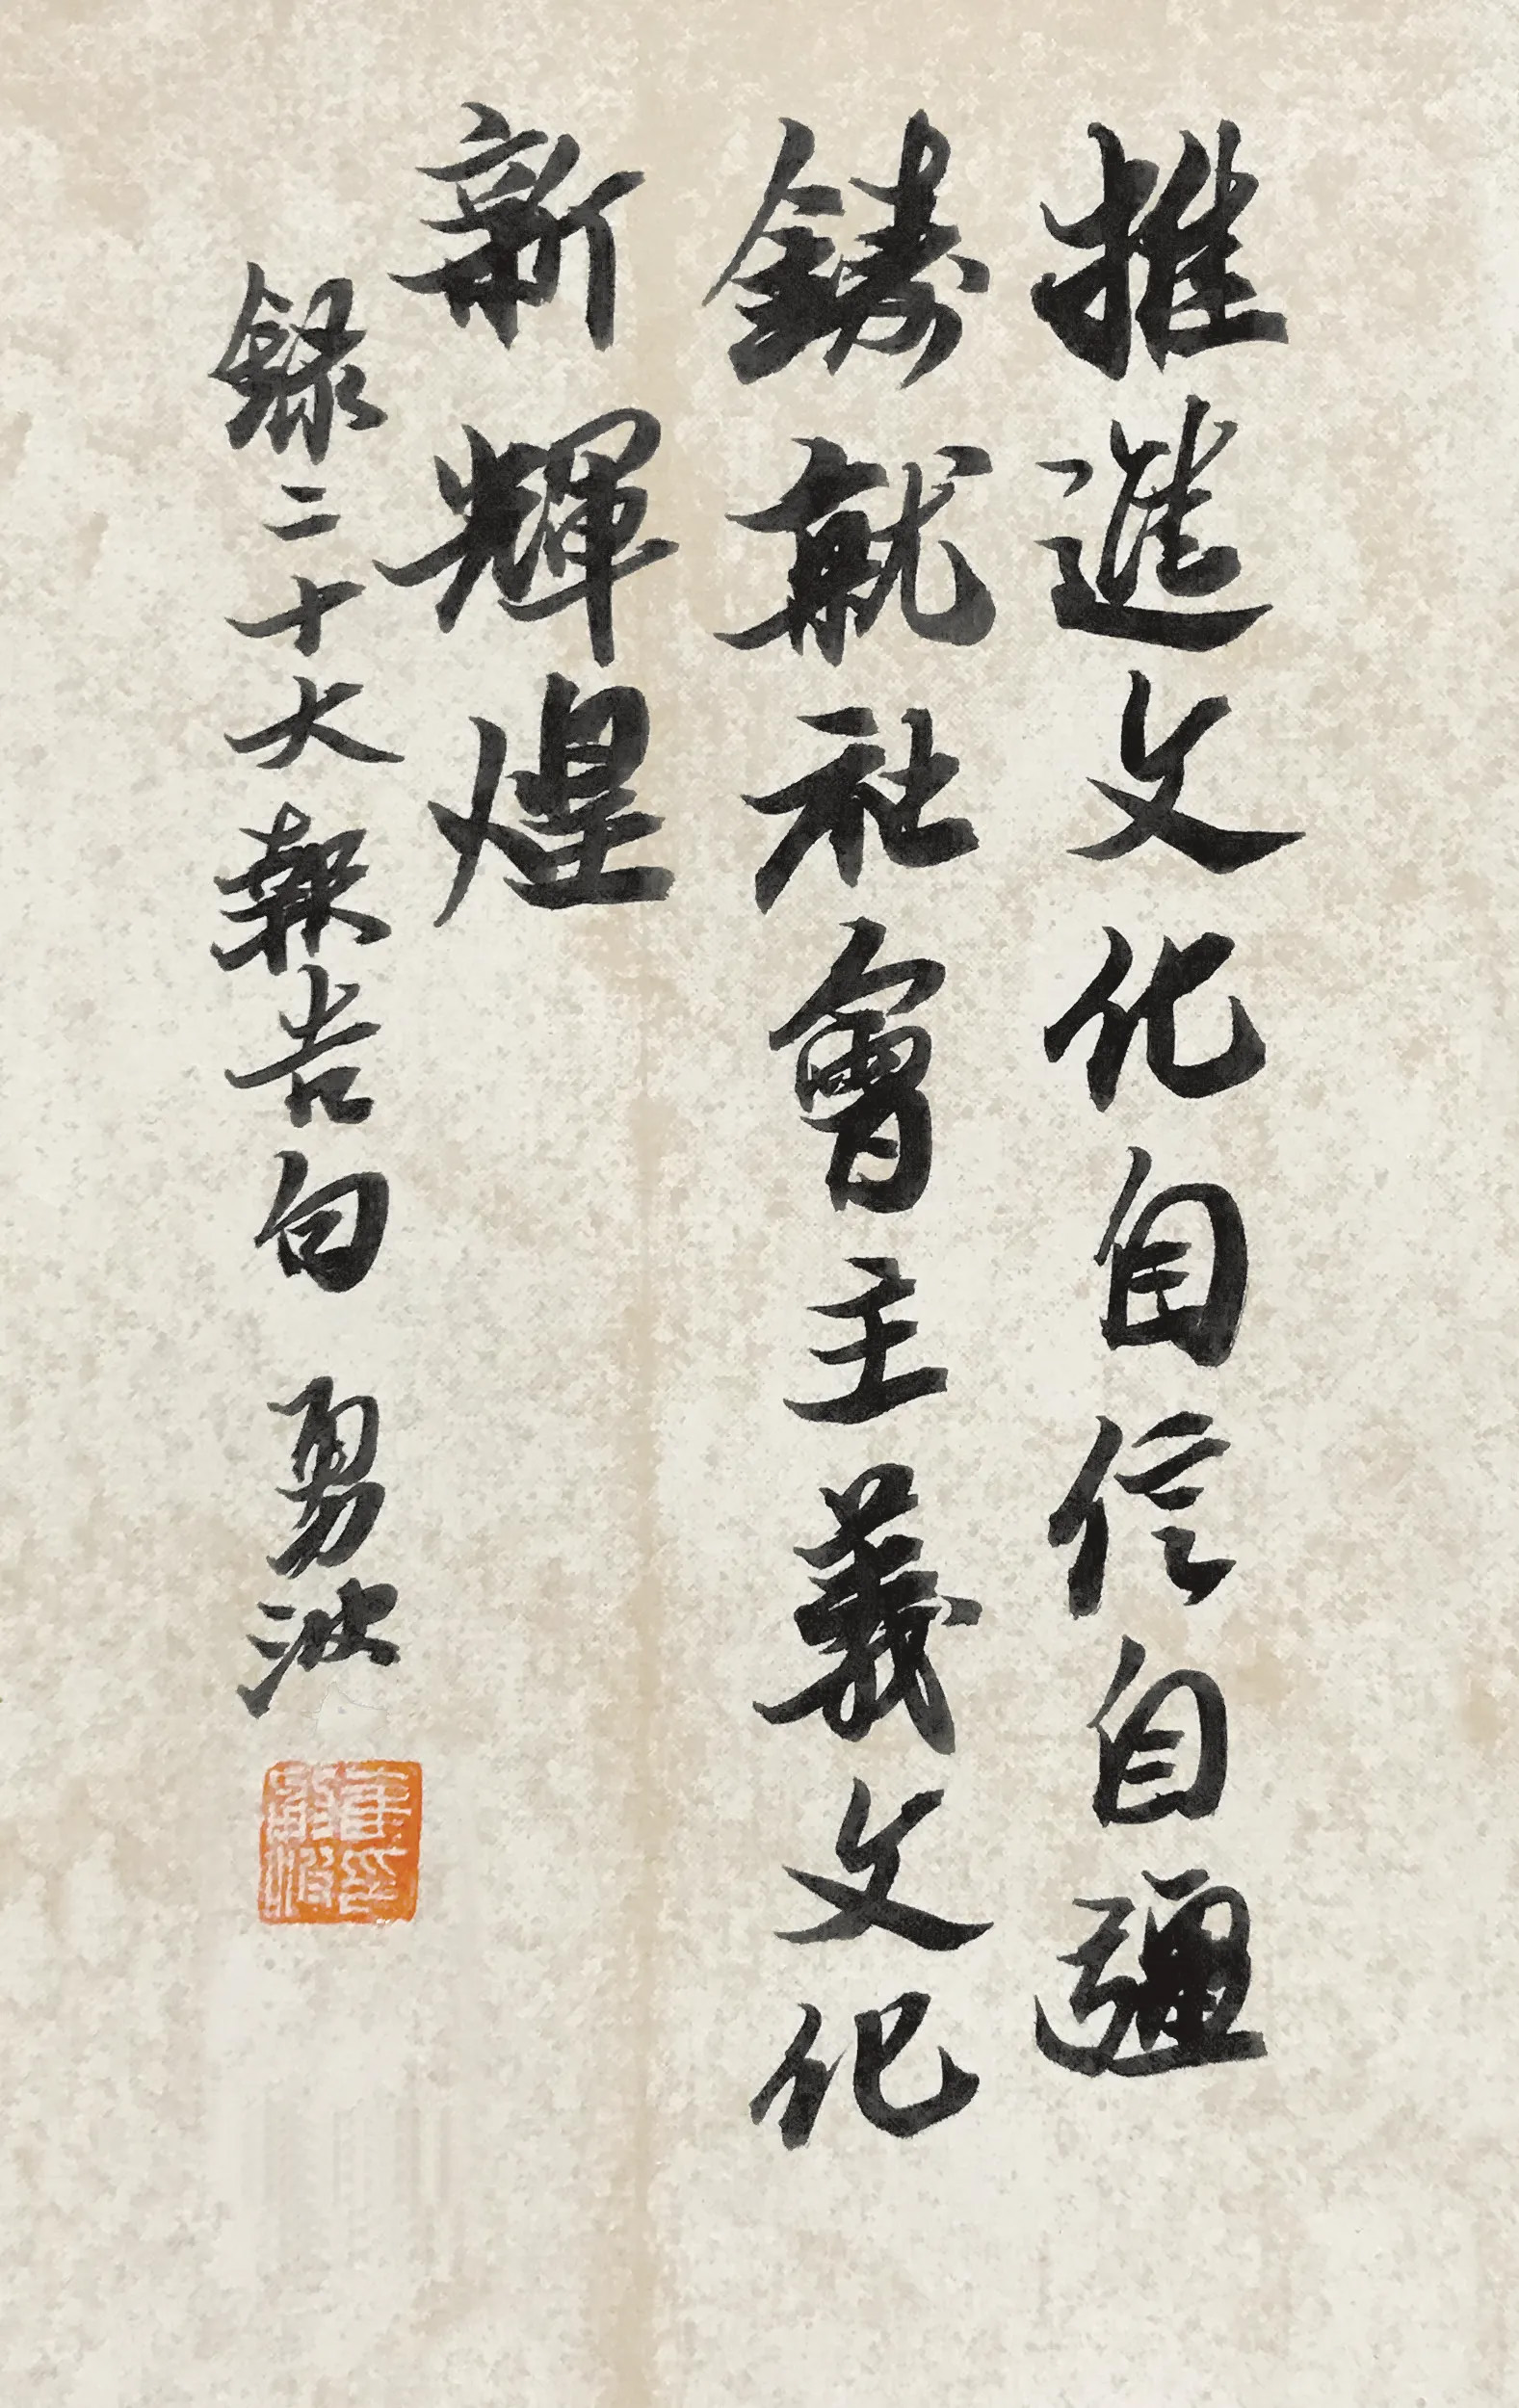 推進文化自信自彊
鑄就社會主義文化
新輝煌
錄二十大報告句 勇波